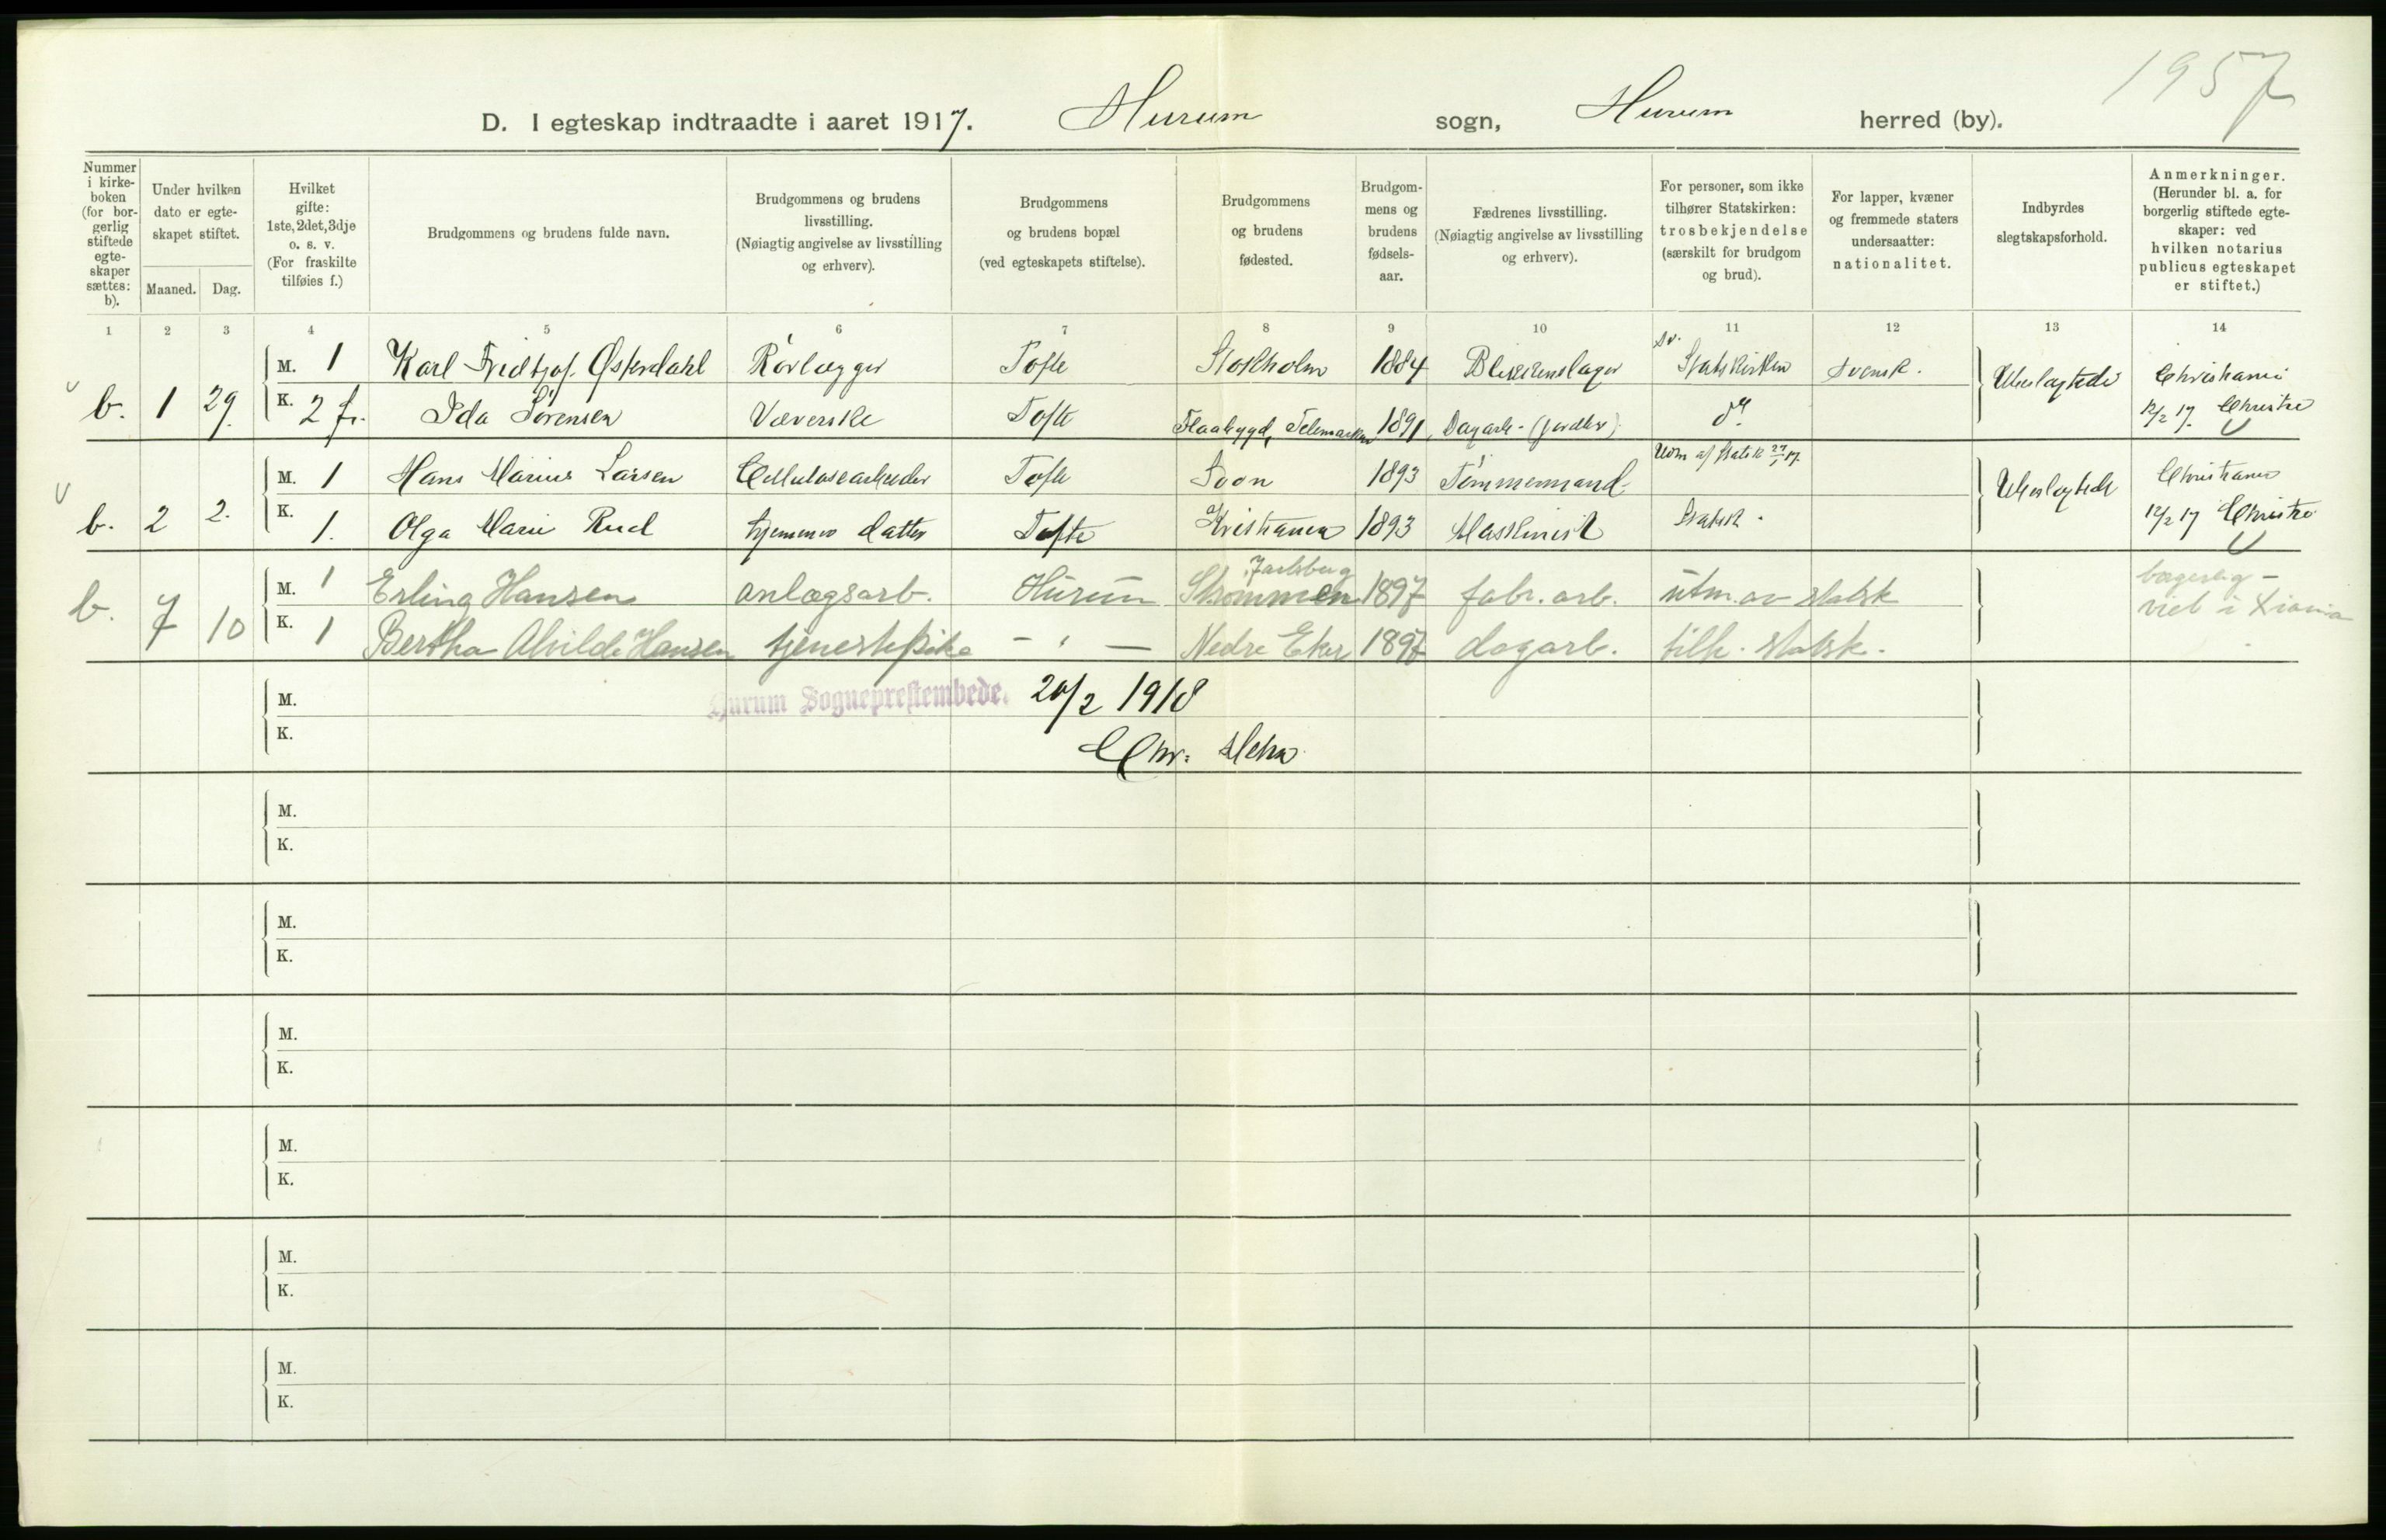 1957
D. I egteskap indtraadte i aaret 1917. Hurum sogn, Hurum herred (by).
Nummer i kirke-boken (for bor-gerlig stiftede egte-skaper sættes: b).
Under hvilken dato er egte-skapet stiftet.
Maaned. Dag.
Hvilket gifte: 1ste, 2det, 3dje o. s. v. (For fraskilte tilføies f.)
Brudgommens og brudens fulde navn.
Brudgommens og brudens livsstilling. (Nøiagtig angivelse av livsstilling og erhverv).
Brudgommens og brudens bopæl (ved egteskapets stiftelse).
Brudgommens og brudens fødested.
Brudgom-mens og brudens fødsels-aar.
Fædrenes livsstilling. (Nøiagtig angivelse av livsstilling og erhverv).
For personer, som ikke tilhører Statskirken: trosbekjendelse (særskilt for brudgom og brud).
For lapper, kvæner og fremmede staters undersaatter: nationalitet.
Indbyrdes slegtskapsforhold.
Anmerkninger. (Herunder bl. a. for borgerlig stiftede egte-skaper: ved hvilken notarius publicus egteskapet er stiftet.)
1 2 3 4 5 6 7 8 9 10 11 12 13 14
M. 1 Karl Fridtjof Østerdahl Rørlægger Tofte Stokholm 1884 Blikkenslager Sv. Statskirken svensk. Ubeslægtede Christiania
b. 1 29. K. 2 fr. Ida Sørensen Væverske Tofte Flaabygd, Telemarken 1891 Dagarb. - (jordbr) do. 12/2 17.
M. 1 Hans Marius Larsen Cellulosearbeider Tofte Soon 1893 Tømmermand Udm af Statsk 27/1 17. Ubeslægtede Christiania
b. 2 2. K. 1. Olga Marie Rud hjemmev datter Tofte Kristiania 1893 Maskinist Statsk. 12/2 17
M. 1 Erling Hansen anlægsarb. Hurum Strømmen Jarlsberg 1897 fabr. arb. utm. av statsk borgerlig -
b. 7 10 K. 1 Bertha Alvilde Hansen tjenestepike - " - Nedre Eker 1898 dagarb. tilh. statsk. viet i Kr.ania
M. Hurum Sogneprestembede. 20/2 1918
K. Chr.
M.
K.
M.
K.
M.
K.
M.
K.
M.
K.
M.
K.